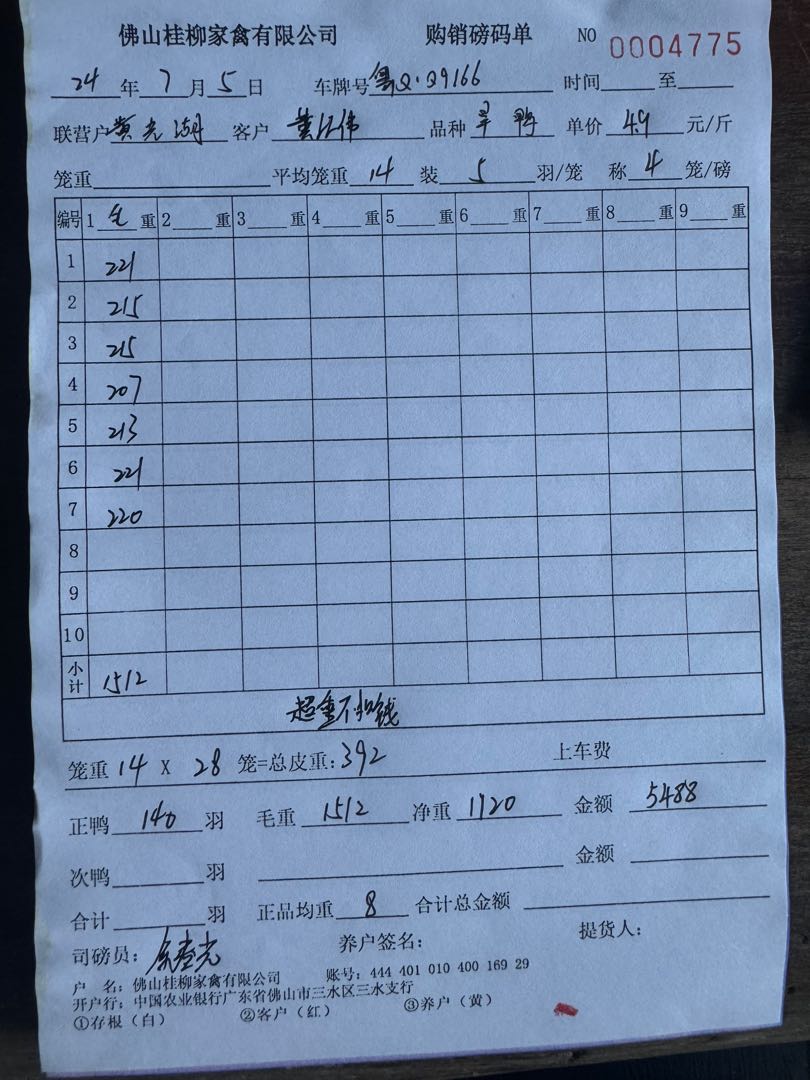 佛山桂柳家禽有限公司 购销磅码单 NO 0004775
24 年 7 月 5 日 车牌号 粤Q·Q9166 时间 至
联营户 黄光湖 客户 黄江伟 品种 鸭 单价 4.9 元/斤
笼重 平均笼重 14 装 5 羽/笼 称 4 笼/磅
编号 1 毛 重 2 重 3 重 4 重 5 重 6 重 7 重 8 重 9 重
1 221
2 215
3 215
4 207
5 213
6 221
7 220
8
9
10
小计 1512
超重不扣钱
笼重 14 X 28 笼=总皮重: 392 上车费
正鸭 140 羽 毛重 1512 净重 1120 金额 5488
次鸭 羽 金额
合计 羽 正品均重 8 合计总金额
司磅员: 养户签名: 提货人:
户 名: 佛山桂柳家禽有限公司 账号: 444 401 010 400 169 29
开户行: 中国农业银行广东省佛山市三水区三水支行
①存根(白) ②客户(红) ③养户(黄)